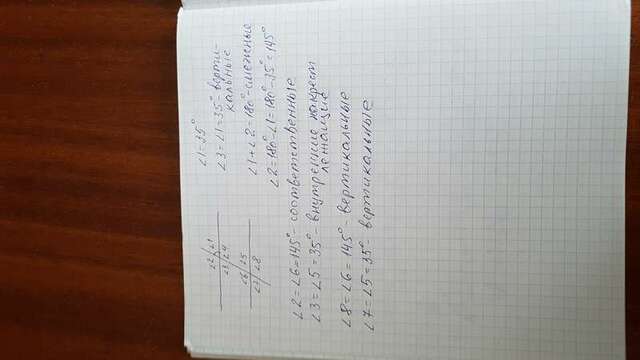 ∠1=35°
∠3=∠1=35°-верти-
кальные
∠1+∠2=180°-смежные
∠2=180°-∠1=180°-35°=145°
∠2/∠1
∠3/∠4
∠6/∠5
∠7/∠8
∠2=∠6=145°-соответственные
∠3=∠5=35°-внутренние накрест
лежащие
∠8=∠6=145°-вертикальные
∠7=∠5=35°-вертикальные